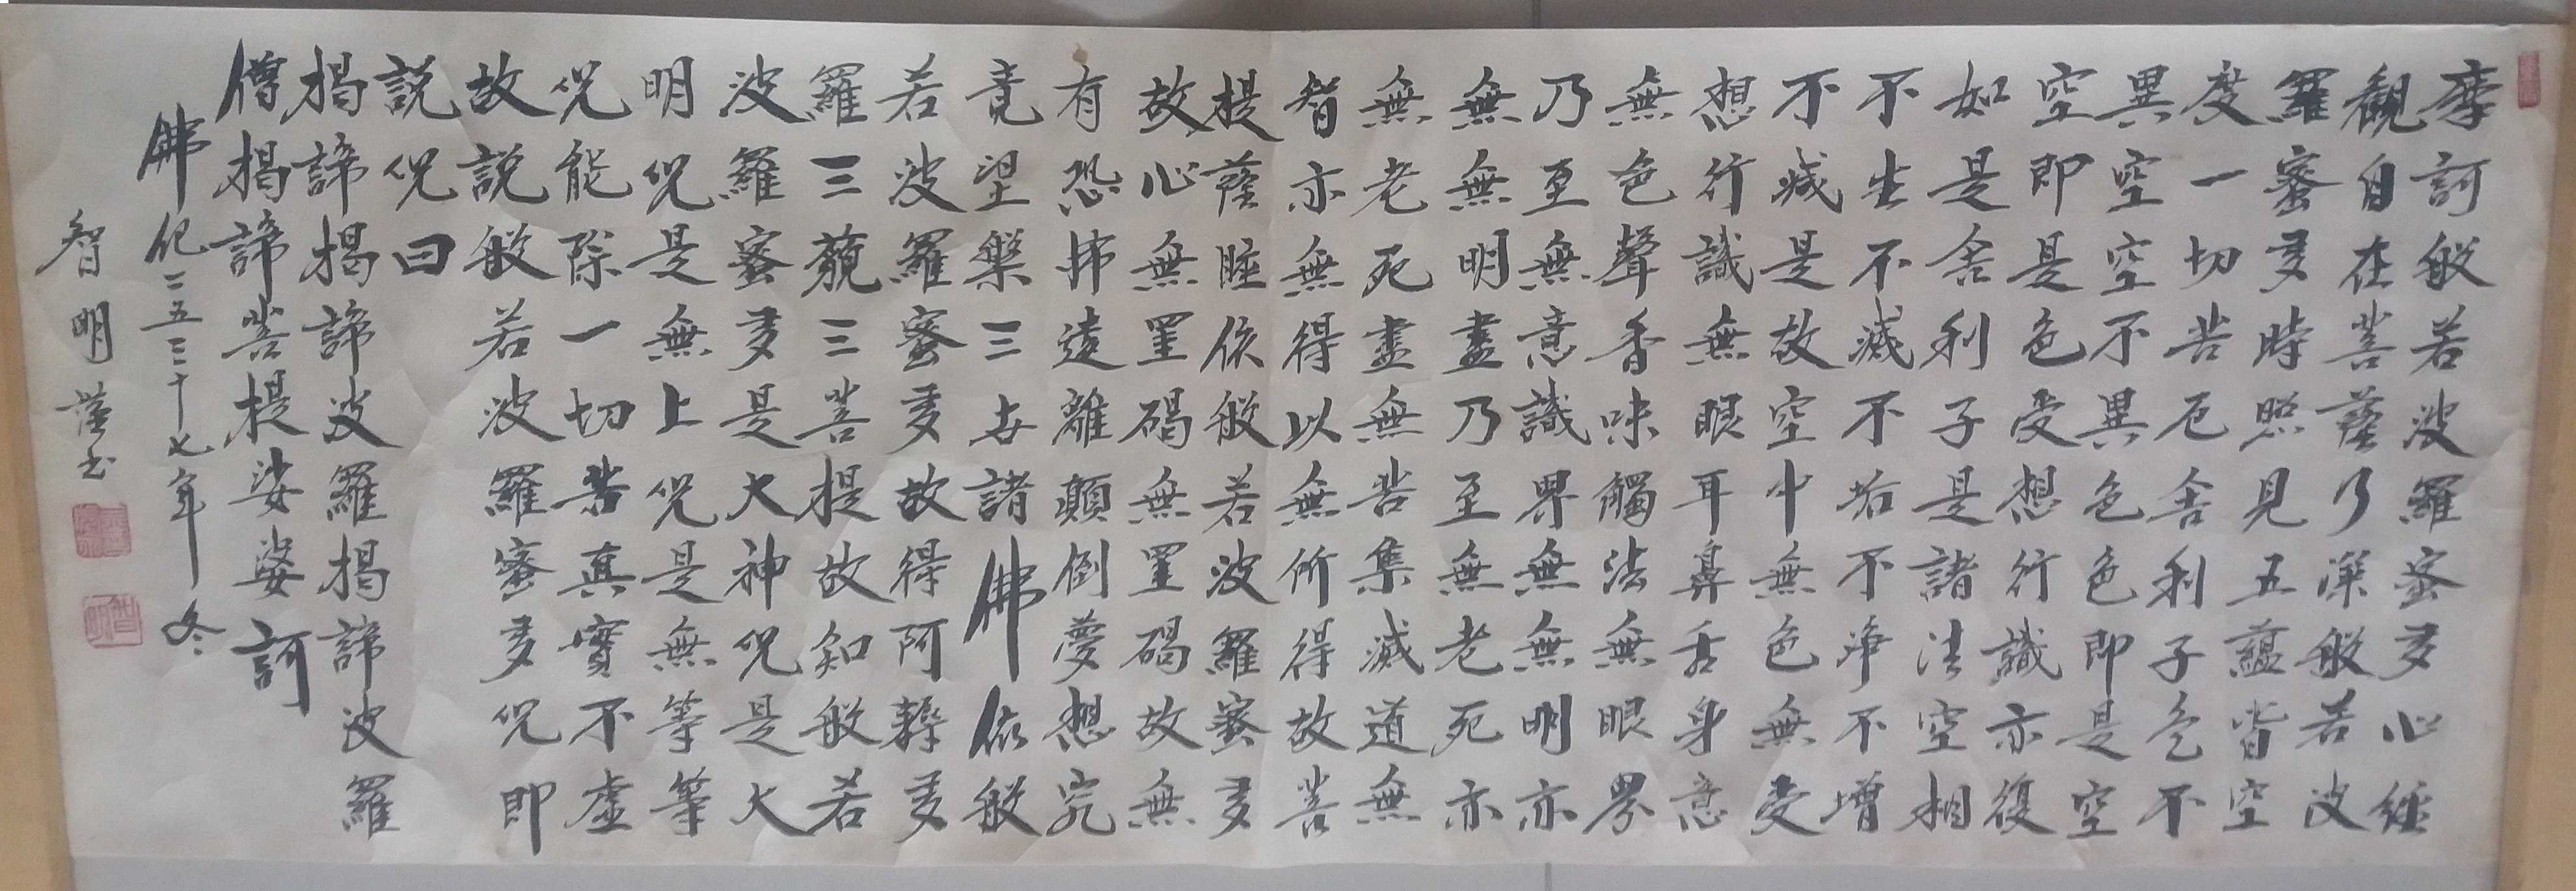 摩訶般若波羅蜜多心經
觀自在菩薩乃深般若波
羅蜜多時照見五蘊皆空
度一切苦厄舍利子色不
異空空不異色色即是空
空即是色受想行識亦復
如是舍利子是諸法空相
不生不滅不垢不淨不增
不減是故空中無色無受
想行識無眼耳鼻舌身意
無色聲香味觸法無眼界
乃至無意識界無無明亦
無無明盡乃至無老死亦
無老死盡無苦集滅道無
智亦無得以無所得故菩
提薩睡依般若波羅蜜多
故心無罣碍無罣碍故無
有恐怖遠離顛倒夢想究
竟涅槃三世諸佛依般
若波羅蜜多故得阿耨多
羅三藐三菩提故知般若
波羅蜜多是大神咒是大
明咒是無上咒是無等等
咒能除一切苦真實不虛
故說般若波羅蜜多咒即
說咒曰
揭諦揭諦波羅揭諦波羅
僧揭諦菩提娑婆訶
佛紀二五三十七年冬
智明謹書
智明